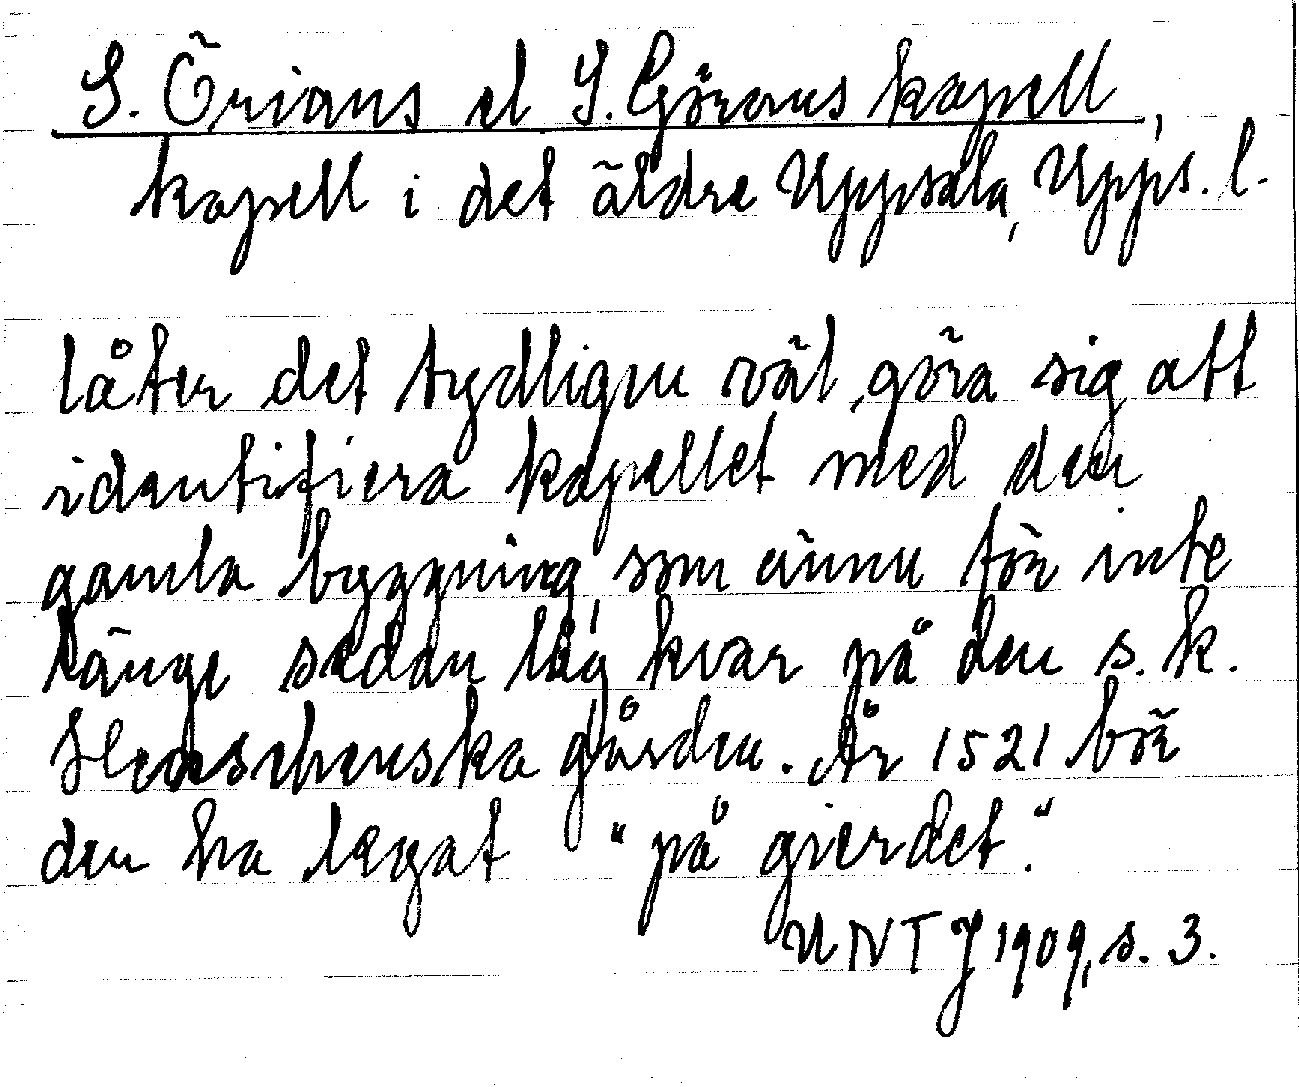 S. Örians el S. Görans kapell,
kapell i det äldre Uppsala, Upps. l.
låter det tydligen väl göra sig att
identifiera kapellet med den
gamla byggning, som ännu för inte
länge sedan låg kvar på den s. k.
Henschenska gården. År 1521 bör
den ha legat "på gierdet".
UNTJ 1909, s. 3.